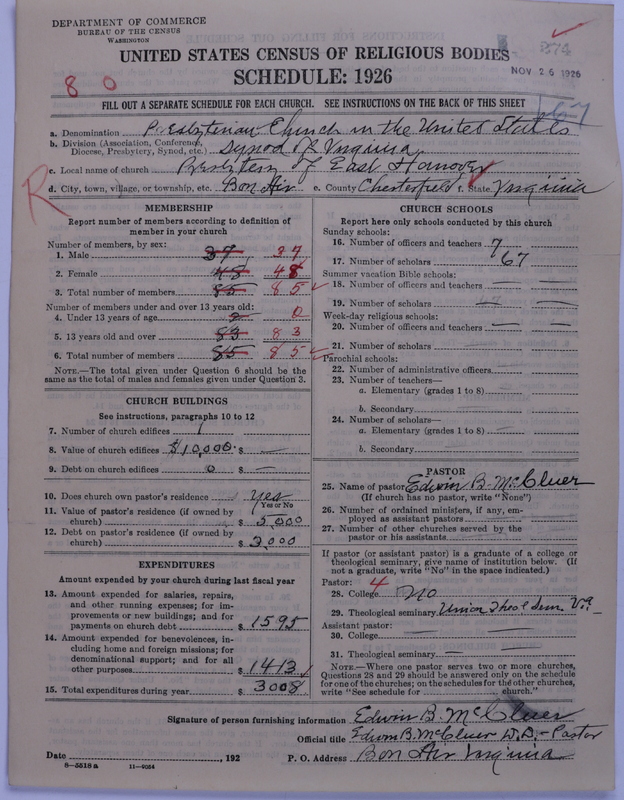 DEPARTMENT OF COMMERCE
BUREAU OF THE CENSUS
WASHINGTON
UNITED STATES CENSUS OF RELIGIOUS BODIES
SCHEDULE: 1926
NOV 26 1926
8 0
FILL OUT A SEPARATE SCHEDULE FOR EACH CHURCH. SEE INSTRUCTIONS ON THE BACK OF THIS SHEET
a. Denomination Presbyterian Church in the United States
b. Division (Association, Conference, Diocese, Presbytery, Synod, etc.) Synod of Virginia
c. Local name of church Presbytery of East Hanover
d. City, town, village, or township, etc. Bon Air e. County Chesterfield f. State Virginia
R
MEMBERSHIP
Report number of members according to definition of
member in your church
Number of members, by sex:
1. Male 37 37
2. Female 48 48
3. Total number of members 85 85
Number of members under and over 13 years old:
4. Under 13 years of age 2 0
5. 13 years old and over 83 83
6. Total number of members 85 85
NOTE.—The total given under Question 6 should be the
same as the total of males and females given under Question 3.
CHURCH BUILDINGS
See instructions, paragraphs 10 to 12
7. Number of church edifices 1
8. Value of church edifices $10,000. $ —
9. Debt on church edifices 0 $ —
10. Does church own pastor's residence Yes
Yes or No
11. Value of pastor's residence (if owned by
church) $ 5,000
12. Debt on pastor's residence (if owned by
church) $ 3,000
EXPENDITURES
Amount expended by your church during last fiscal year
13. Amount expended for salaries, repairs,
and other running expenses; for im-
provements or new buildings; and for
payments on church debt $ 1595
14. Amount expended for benevolences, in-
cluding home and foreign missions; for
denominational support; and for all
other purposes $ 1413
15. Total expenditures during year $ 3008
CHURCH SCHOOLS
Report here only schools conducted by this church
Sunday schools:
16. Number of officers and teachers 7
17. Number of scholars 67
Summer vacation Bible schools:
18. Number of officers and teachers —
19. Number of scholars
Week-day religious schools:
20. Number of officers and teachers —
21. Number of scholars —
Parochial schools:
22. Number of administrative officers
23. Number of teachers—
a. Elementary (grades 1 to 8)
b. Secondary
24. Number of scholars—
a. Elementary (grades 1 to 8)
b. Secondary
PASTOR
25. Name of pastor Edwin B. McCluer
(If church has no pastor, write "None")
26. Number of ordained ministers, if any, em-
ployed as assistant pastors
27. Number of other churches served by the
pastor or his assistants
If pastor (or assistant pastor) is a graduate of a college or
theological seminary, give name of institution below. (If
not a graduate, write "No" in the space indicated.)
Pastor: 4
28. College No
29. Theological seminary Union Theol Sem Va
Assistant pastor:
30. College —
31. Theological seminary —
NOTE.—Where one pastor serves two or more churches,
Questions 28 and 29 should be answered only on the schedule
for one of the churches; on the schedules for the other churches,
write "See schedule for church."
Signature of person furnishing information Edwin B. McCluer
Official title Edwin B. McCluer D.D. - Pastor
Date , 192 P. O. Address Bon Air Virginia
8—5518 a 11—9054